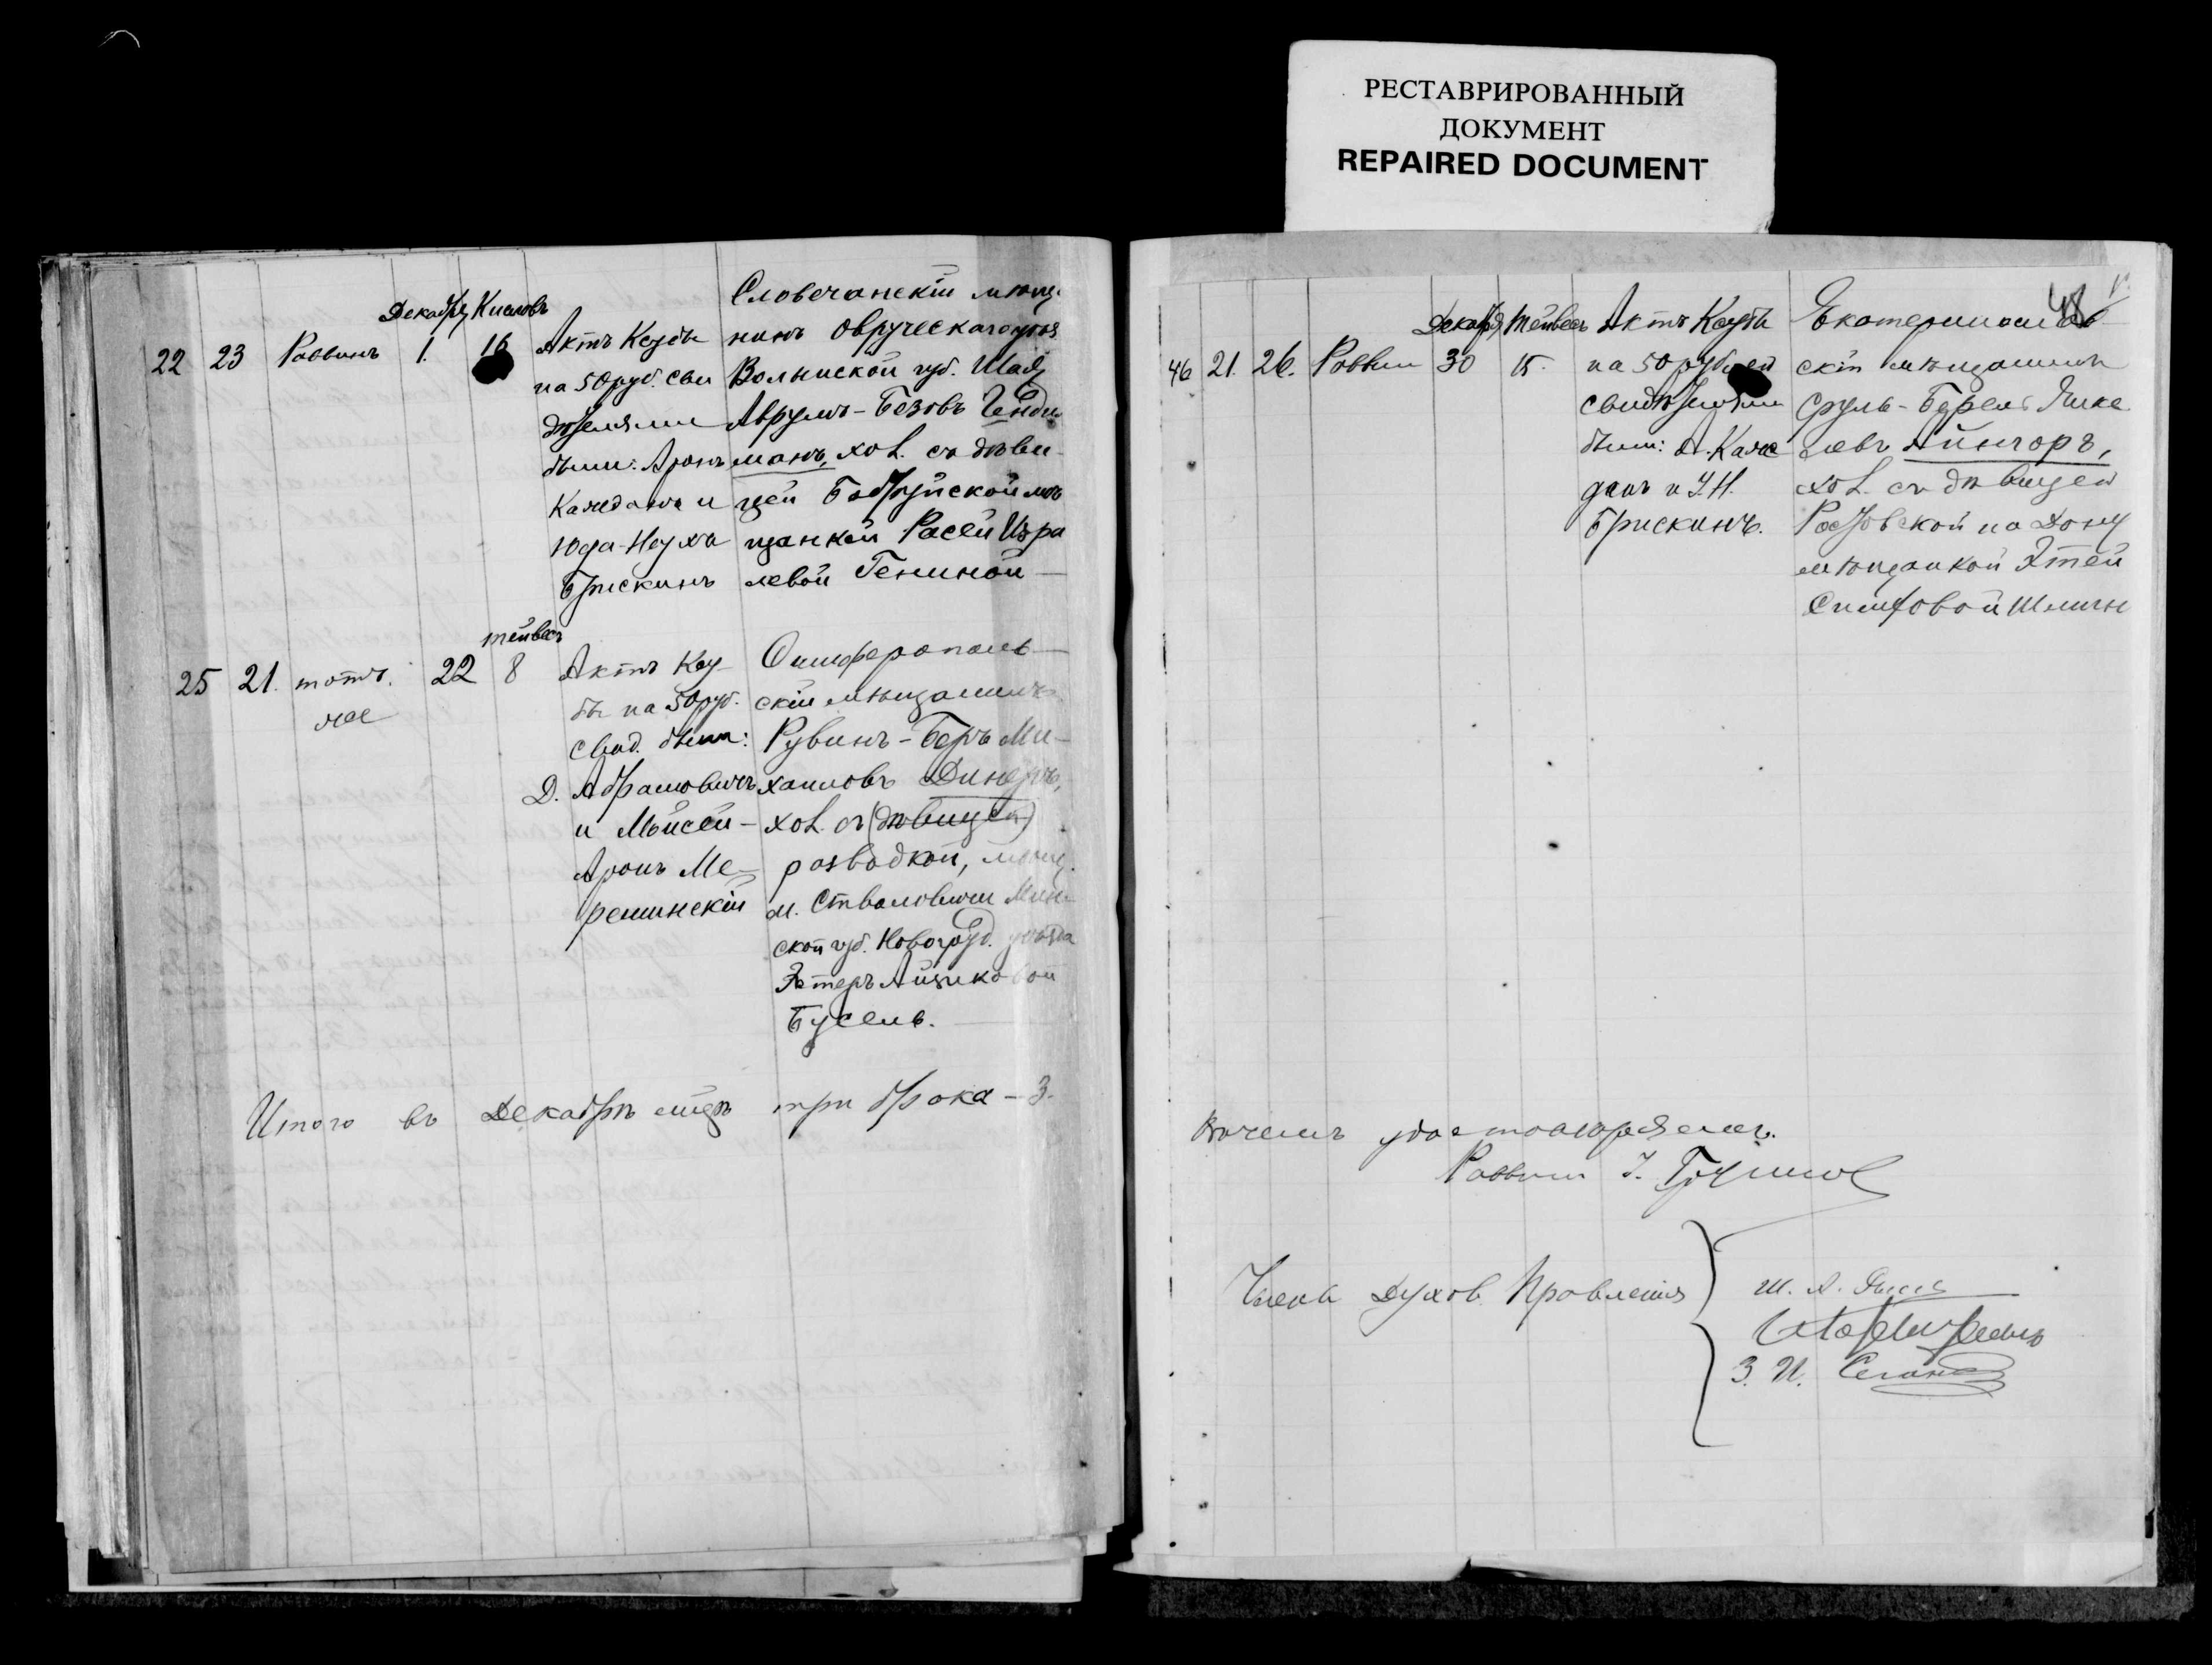 РЕСТАВРИРОВАННЫЙ
ДОКУМЕНТ
REPAIRED DOCUMENT
Декабрь Кислевъ
22 23 Раввинъ 1. 16
Актъ Кесубы
на 50 руб. сви
дѣтелями
были: Аронъ
Каждань и
Юда-Неухъ
Брискинъ
Словечанскій мѣщ.
нинъ Овручскаго уѣзд
Волынской губ.
Аврумъ-Безовъ Гендель
манъ, хол. съ дѣви
цей Бобруйской мѣ
щанкой Расей Изра
левой Гениной
Тейвесъ
25 21. тотъ 22 8
же
Актъ Кесу-
бы на 50 руб.
свид. были:
Д. Абрамовичъ
и Мойсей-
Аронъ Ме-
решинскій
Симферополь-
скій мѣщанинъ
Рувинъ-Беръ Ми-
хаиловъ Динеръ,
хол. съ (дѣвицей)
разводкой, мѣщ.
м. Столовичи Мин-
ской губ. Новогруд. уѣзда
Эстеръ Айзиковой
Бусель.
Итого въ Декабрѣ мцѣ три брака – 3.
48
Декабря Тейвесъ
46 21. 26. Раввин 30 15.
Актъ Кесубы
на 50 рублей
свидѣтелями
были: А. Каж
данъ и Ю.Н.
Брискинъ.
Екатеринослав
скій мѣщанинъ
Сруль-Берелъ Янке
левъ Айнгоръ,
хол. съ дѣвицей
Ростовской на Дону
мѣщанкой Этей
Въ чемъ удостовѣряемъ.
Раввин
Члены Духов. Правленія
Ш. А.
З. И.